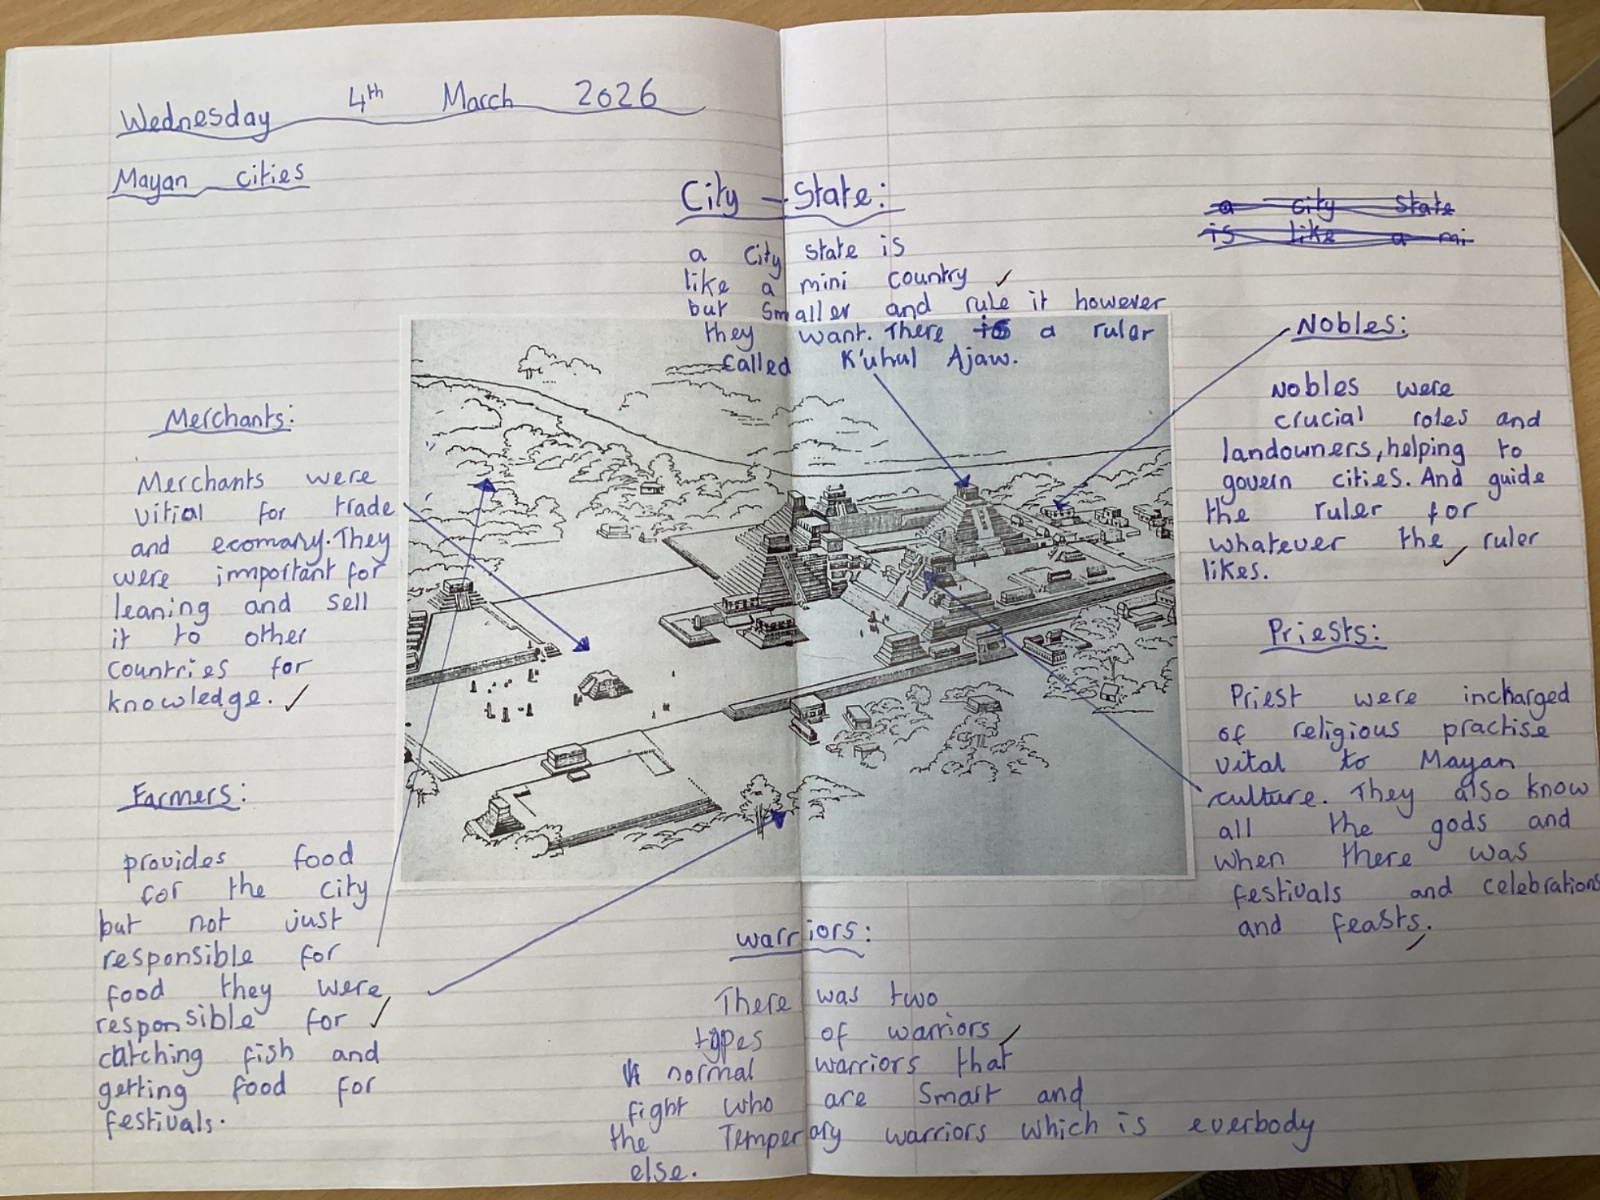 Wednesday 4th March 2026
Mayan cities
City - State:
a city state is
like a mini country
but smaller and rule it however
they want. There is a ruler
called K'uhul Ajaw.
a city state
is like a mi
Merchants:
Merchants were
vitial for trade
and ecomany. They
were important for
leaning and sell
it to other
countries for
knowledge.
Farmers:
provides food
for the city
but not just
responsible for
food they were
responsible for
catching fish and
getting food for
festivals.
Nobles:
Nobles were
crucial roles and
landowners, helping to
govern cities. And guide
the ruler for
whatever the ruler
likes.
Priests:
Priest were incharged
of religious practise
vital to Mayan
culture. They also know
all the gods and
when there was
festivals and celebrations
and feasts.
Warriors:
There was two
types of warriors
normal warriors that
fight who are smart and
the Temperary warriors which is everbody
else.